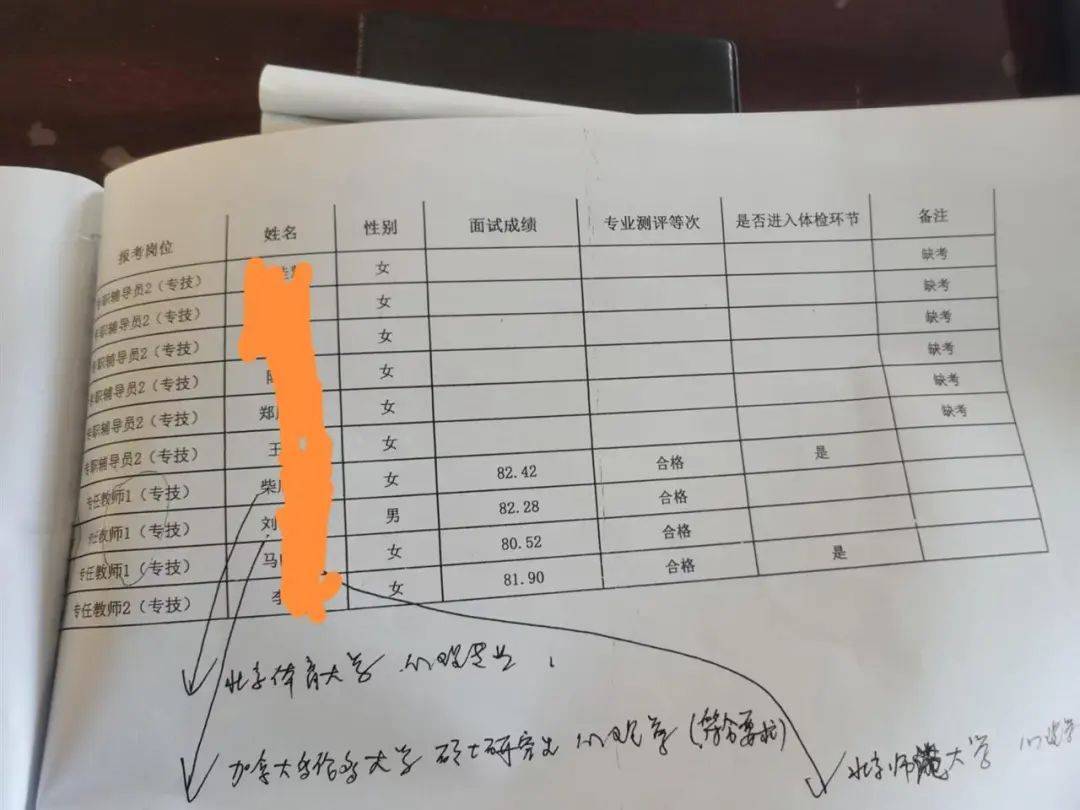 报考岗位 姓名 性别 面试成绩 专业测评等次 是否进入体检环节 备注
专职辅导员2（专技） 女 缺考
专职辅导员2（专技） 女 缺考
专职辅导员2（专技） 女 缺考
专职辅导员2（专技） 女 缺考
专职辅导员2（专技） 郑 女 缺考
专职辅导员2（专技） 王 女 缺考
专任教师1（专技） 柴 女 82.42 合格 是
任教师1（专技） 刘 男 82.28 合格
专任教师1（专技） 马 女 80.52 合格
专任教师2（专技） 李 女 81.90 合格 是
北京体育大学
加拿大 大学 硕士研究生 心理学
北京师范大学 心理学